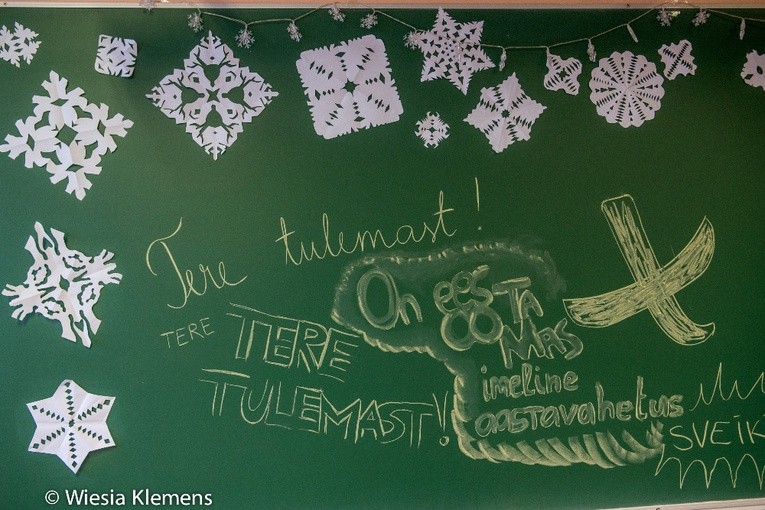 Tere tulemast!
TERE TERE
TULEMAST!
On ees
OOTA
MAS
imeline
aastavahetus
SVEIK
© Wiesia Klemens